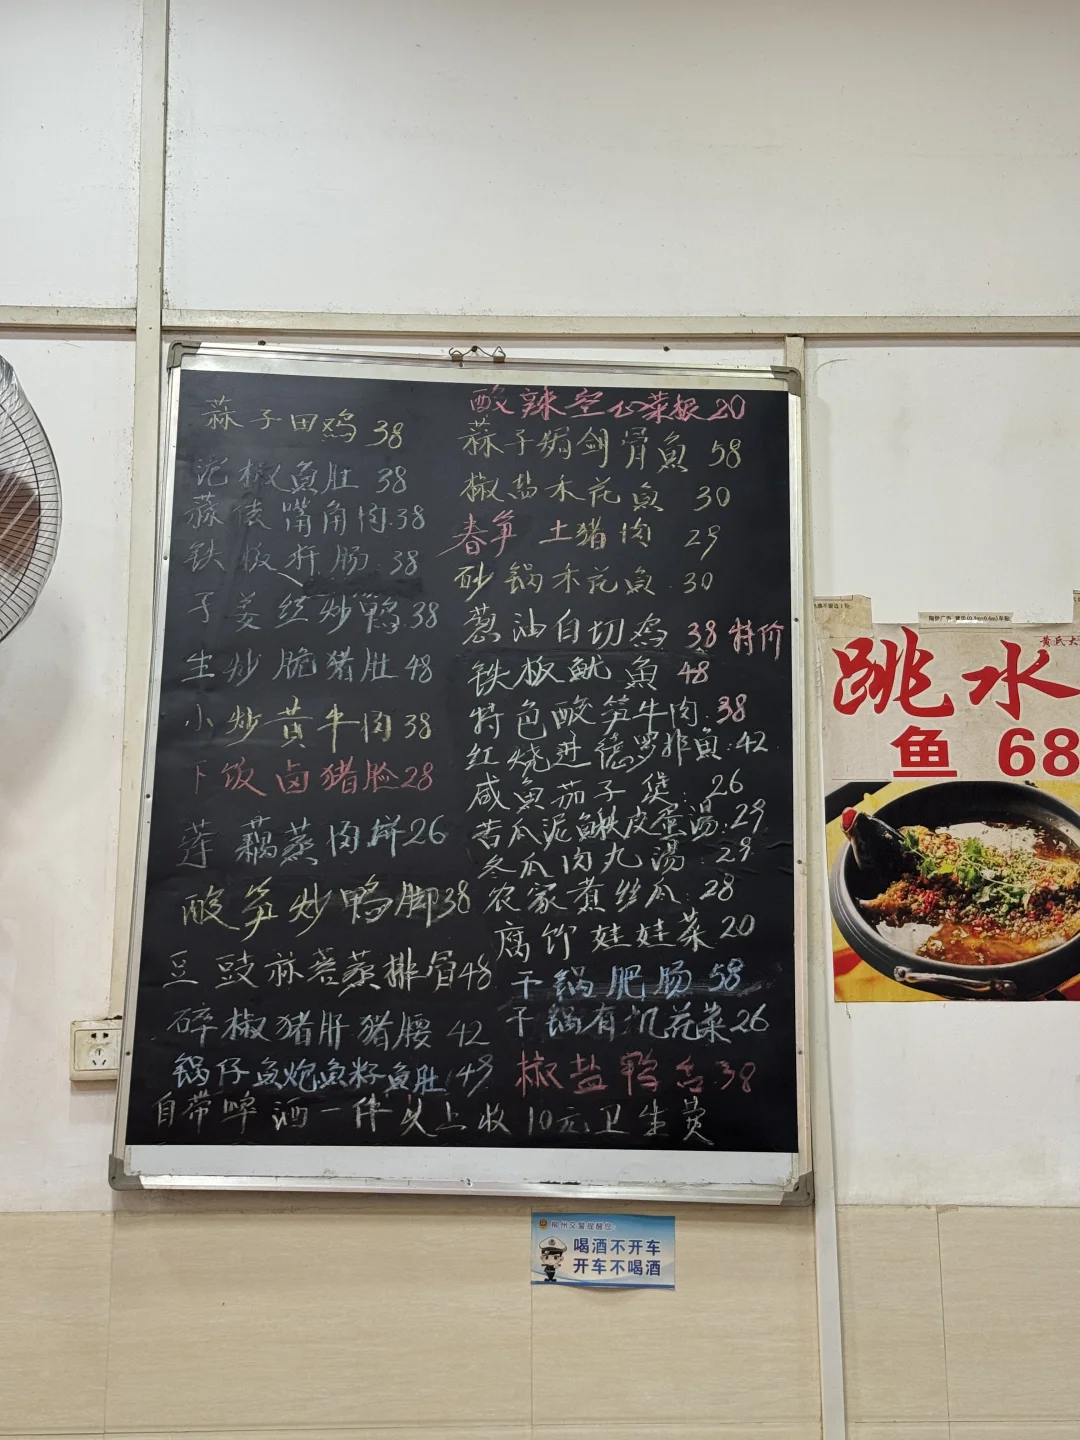 蒜子田鸡 38
泡椒魚肚 38
嘴角肉 38
铁板 肠 38
子姜丝炒鸭 38
生炒脆猪肚 48
小炒黄牛肉 38
下饭卤猪脸 28
莲藕蒸肉饼 26
酸笋炒鸭脚 38
豆豉蒜蓉蒸排骨 48
碎椒猪肝猪腰 42
锅仔鱼炮魚籽鱼肚 48
自带啤酒一件以上收10元卫生费
酸辣空心菜根 20
蒜子焗剑骨魚 58
椒盐禾花魚 30
春笋土猪肉 29
砂锅禾花魚 30
葱油白切鸡 38 特价
铁板鱿魚 48
特色酸笋牛肉 38
红烧进德罗非魚 42
咸魚茄子煲 26
苦瓜泥鳅皮蛋湯 29
冬瓜肉丸湯 29
农家煮丝瓜 28
腐竹娃娃菜 20
干锅肥肠 58
干锅有机花菜 26
椒盐鸭舌 38
黄氏大
跳水
鱼 68
柳州交警提醒您:
喝酒不开车
开车不喝酒